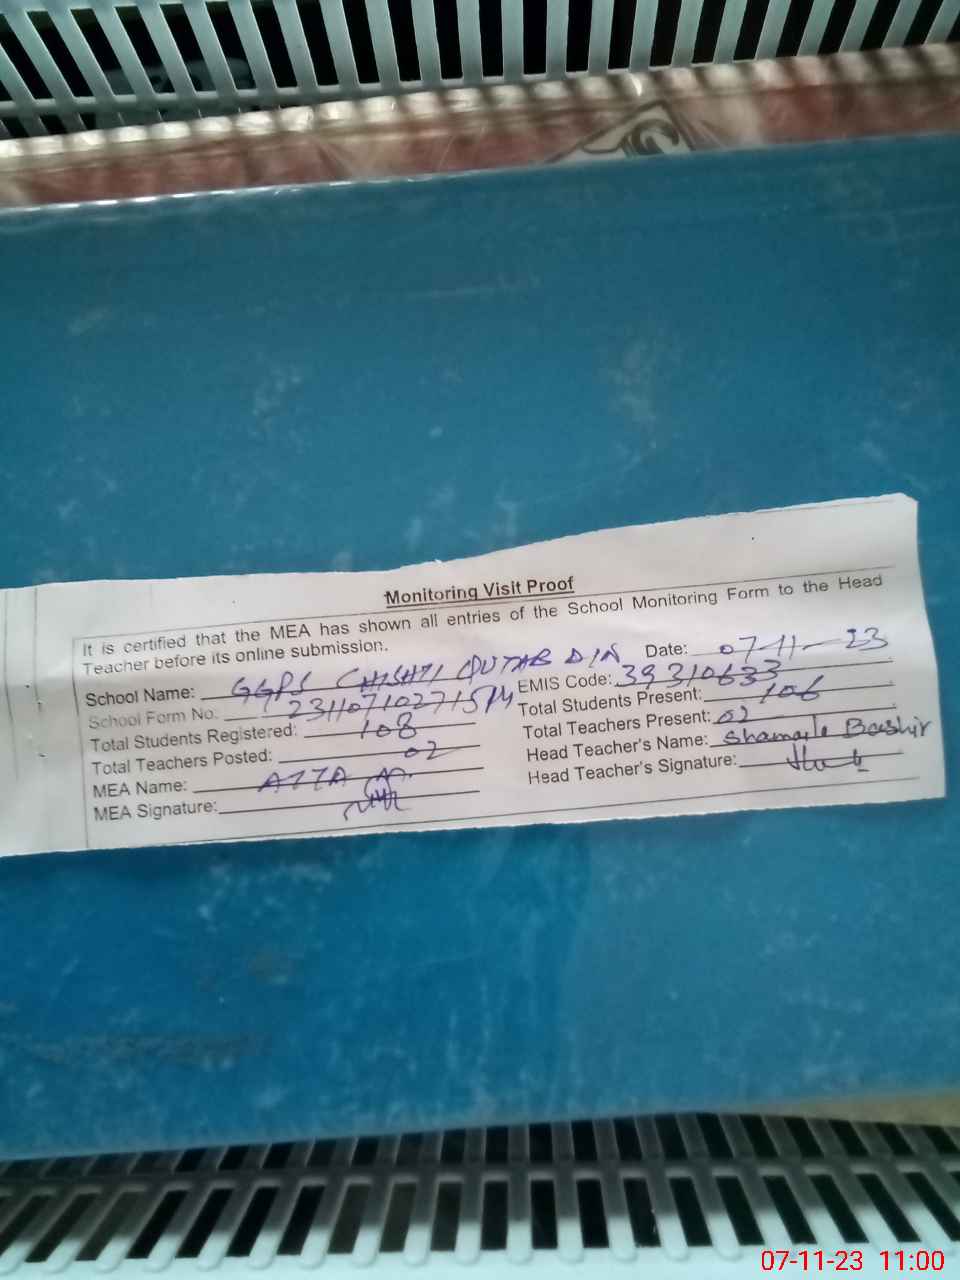 Monitoring Visit Proof
It is certified that the MEA has shown all entries of the School Monitoring Form to the Head
Teacher before its online submission.
School Name: GGPS CHISHTI QUTAB DIN Date: 07-11-23
School Form No: EMIS Code: 39310633
Total Students Registered: 108 Total Students Present: 106
Total Teachers Posted: 02 Total Teachers Present: 02
MEA Name: ATTA Head Teacher's Name: Shamaila Bashir
MEA Signature: Head Teacher's Signature:
07-11-23 11:00